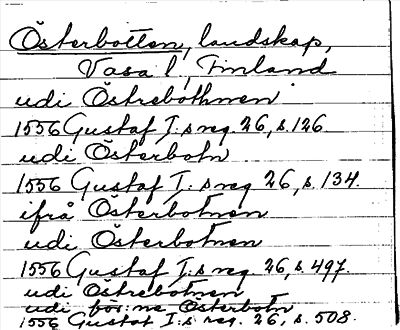 Österbotten, landskap,
Vasa l., Finland
udi Östrebothnen
1556 Gustaf I:s reg. 26, s. 126.
udi Österbotn
1556 Gustaf I:s reg. 26, s. 134.
ifrå Österbotnen
udi Österbotnen
1556 Gustaf I:s reg. 26, s. 497.
udi Östrebotnen
udi för:ne Österbotn
1556 Gustaf I:s reg. 26, s. 508.